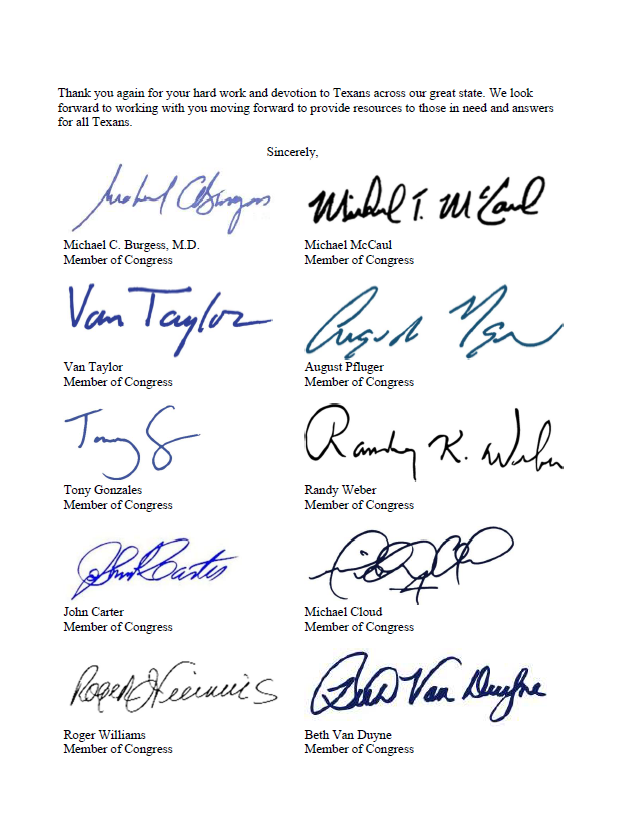 Thank you again for your hard work and devotion to Texans across our great state. We look
forward to working with you moving forward to provide resources to those in need and answers
for all Texans.
Sincerely,
Michael C Burgess
Michael T. McCaul
Michael C. Burgess, M.D.
Michael McCaul
Member of Congress
Member of Congress
Van Taylor
August
Van Taylor
August Pfluger
Member of Congress
Member of Congress
Tony G
Randy K. Weber
Tony Gonzales
Randy Weber
Member of Congress
Member of Congress
John R Carter
John Carter
Michael Cloud
Member of Congress
Member of Congress
Roger Williams
Beth Van Duyne
Roger Williams
Beth Van Duyne
Member of Congress
Member of Congress